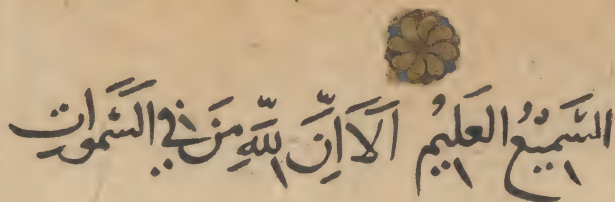 السَّمِيْعُ الْعَلِيْمُ اَلَا اِنَّ لِلّٰهِ مَنْ فِي السَّمٰوَاتِ